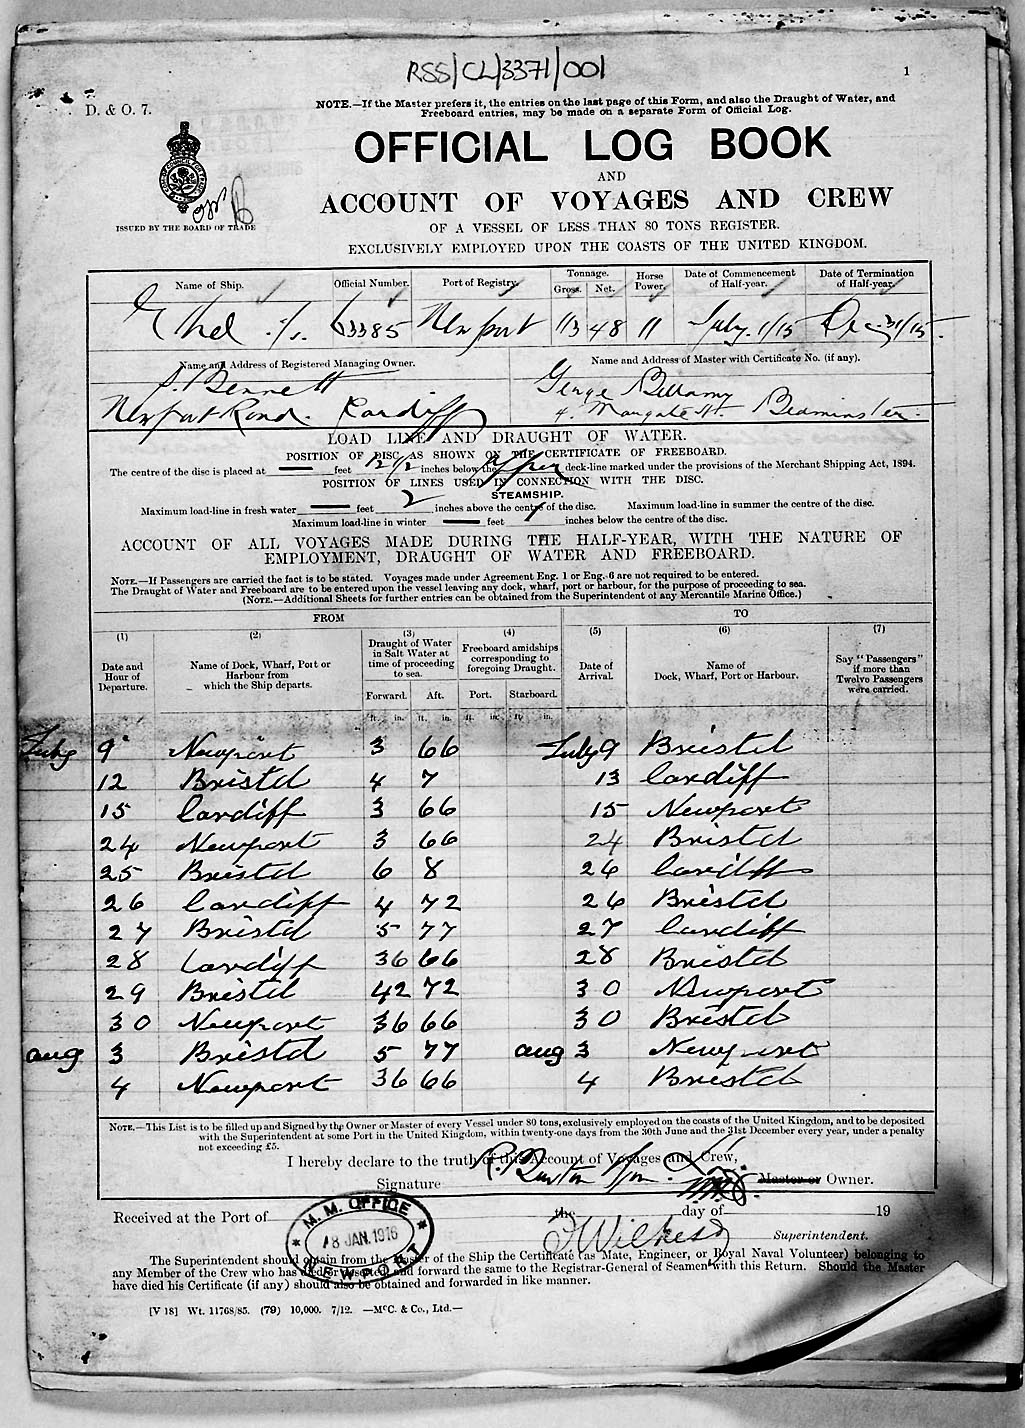 RSS/CL/3371/001
1
D. & O. 7.
NOTE.—If the Master prefers it, the entries on the last page of this Form, and also the Draught of Water, and
Freeboard entries, may be made on a separate Form of Official Log.
OFFICIAL LOG BOOK
AND
ACCOUNT OF VOYAGES AND CREW
OF A VESSEL OF LESS THAN 80 TONS REGISTER.
EXCLUSIVELY EMPLOYED UPON THE COASTS OF THE UNITED KINGDOM.
ISSUED BY THE BOARD OF TRADE
Name of Ship. Official Number. Port of Registry. Tonnage. Gross. Net. Horse Power. Date of Commencement of Half-year. Date of Termination of Half-year.
Ethel s/s. 63385 Newport 113 48 11 July. 1/15 Dec. 31/15.
Name and Address of Registered Managing Owner. Name and Address of Master with Certificate No. (if any).
Bennett George Bellamy
Newport Road. Cardiff 4. Margate St. Bedminster.
LOAD LINE AND DRAUGHT OF WATER.
POSITION OF DISC AS SHOWN ON THE CERTIFICATE OF FREEBOARD.
The centre of the disc is placed at — feet 12 1/2 inches below the upper deck-line marked under the provisions of the Merchant Shipping Act, 1894.
POSITION OF LINES USED IN CONNECTION WITH THE DISC.
STEAMSHIP.
Maximum load-line in fresh water — feet 2 inches above the centre of the disc. Maximum load-line in summer the centre of the disc.
Maximum load-line in winter — feet inches below the centre of the disc.
ACCOUNT OF ALL VOYAGES MADE DURING THE HALF-YEAR, WITH THE NATURE OF
EMPLOYMENT, DRAUGHT OF WATER AND FREEBOARD.
NOTE.—If Passengers are carried the fact is to be stated. Voyages made under Agreement Eng. 1 or Eng. 6 are not required to be entered.
The Draught of Water and Freeboard are to be entered upon the vessel leaving any dock, wharf, port or harbour, for the purpose of proceeding to sea.
(NOTE.—Additional Sheets for further entries can be obtained from the Superintendent of any Mercantile Marine Office.)
FROM TO
(1) (2) (3) (4) (5) (6) (7)
Date and Hour of Departure. Name of Dock, Wharf, Port or Harbour from which the Ship departs. Draught of Water in Salt Water at time of proceeding to sea. Freeboard amidships corresponding to foregoing Draught. Date of Arrival. Name of Dock, Wharf, Port or Harbour. Say "Passengers" if more than Twelve Passengers were carried.
Forward. Aft. Port. Starboard.
ft. in. ft. in. ft. in. ft. in.
July 9 Newport 3 66 July 9 Bristol
12 Bristol 4 7 13 Cardiff
15 Cardiff 3 66 15 Newport
24 Newport 3 66 24 Bristol
25 Bristol 6 8 26 Cardiff
26 Cardiff 4 72 26 Bristol
27 Bristol 5 77 27 Cardiff
28 Cardiff 36 66 28 Bristol
29 Bristol 42 72 30 Newport
30 Newport 36 66 30 Bristol
aug 3 Bristol 5 77 aug 3 Newport
4 Newport 36 66 4 Bristol
NOTE.—This List is to be filled up and Signed by the Owner or Master of every Vessel under 80 tons, exclusively employed on the coasts of the United Kingdom, and to be deposited
with the Superintendent at some Port in the United Kingdom, within twenty-one days from the 30th June and the 31st December every year, under a penalty
not exceeding £5.
I hereby declare to the truth of this Account of Voyages and Crew,
Signature R. Burton & Son. Master or Owner.
Received at the Port of the day of 19
M. M. OFFICE
18 JAN. 1916
NEWPORT
Superintendent.
The Superintendent should obtain from the Master of the Ship the Certificate (as Mate, Engineer, or Royal Naval Volunteer) belonging to
any Member of the Crew who has died or and forward the same to the Registrar-General of Seamen with this Return. Should the Master
have died his Certificate (if any) should also be obtained and forwarded in like manner.
[V 18] Wt. 11768/85. (79) 10,000. 7/12. —McC. & Co., Ltd.—